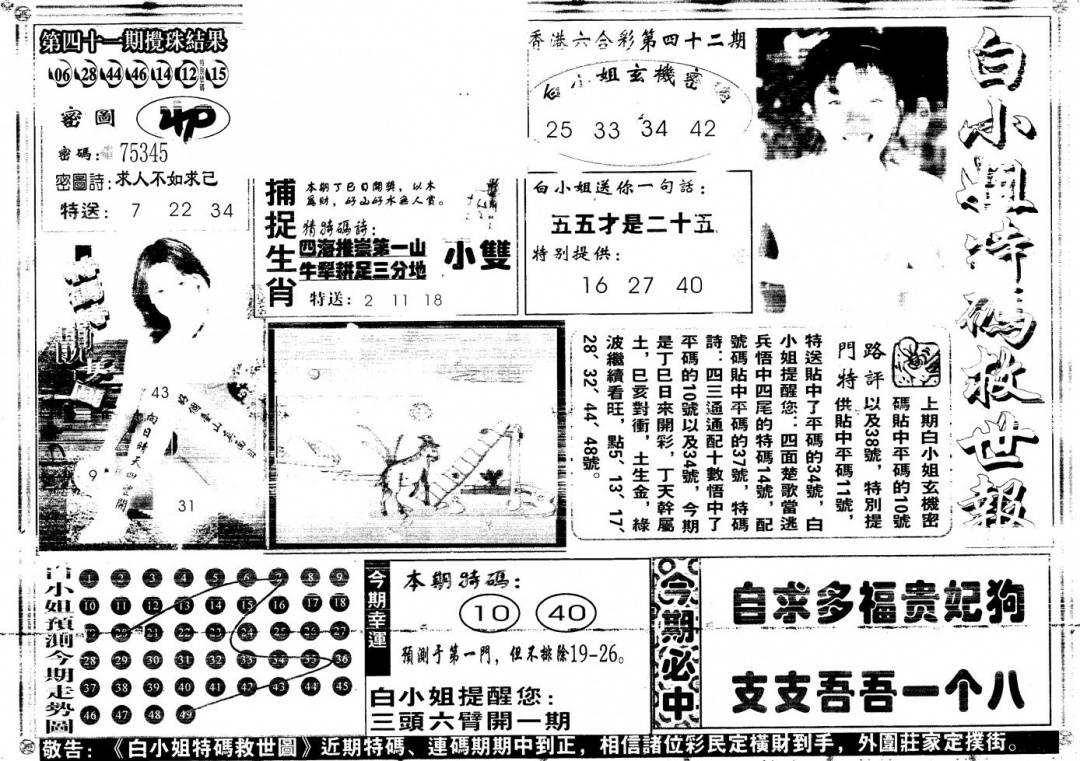 第四十一期攪珠結果
06 28 44 46 14 12 15
密圖
密碼: 75345
密圖詩: 求人不如求己
特送: 7 22 34
捕捉生肖
本期丁巳日開獎，以木
為財，好山好水無人賞。
猜特碼詩:
四海推崇第一山
牛犁耕足三分地
小雙
特送: 2 11 18
香港六合彩第四十二期
白小姐玄機密碼
25 33 34 42
白小姐送你一句話:
五五才是二十五
特别提供:
16 27 40
白小姐特碼救世報
43
9
31
路評
門特
上期白小姐玄機密
碼貼中平碼的10號
以及38號，特別提
供貼中平碼11號，
特送貼中了平碼的34號，白
小姐提醒您：四面楚歌當逃
兵悟中四尾的特碼14號，配
號碼貼中平碼的37號，特碼
詩：四三通通配十數悟中了
平碼的10號以及34號，今期
是丁巳日來開彩，丁天幹屬
土，巳亥對衝，土生金，綠
波繼續看旺，點5′13′17′
28′32′44′48號。
白小姐預測今期走勢圖
1 2 3 4 5 6 7 8 9
10 11 12 13 14 15 16 17 18
19 20 21 22 23 24 25 26 27
28 29 30 31 32 33 34 35 36
37 38 39 40 41 42 43 44 45
46 47 48 49
今期幸運
本期特碼:
10 40
預測于第一門，但不排除19-26。
白小姐提醒您:
三頭六臂開一期
今期必中
自求多福贵妃狗
支支吾吾一个八
敬告: 《白小姐特碼救世圖》近期特碼、連碼期期中到正，相信諸位彩民定橫財到手，外圍莊家定撲街。